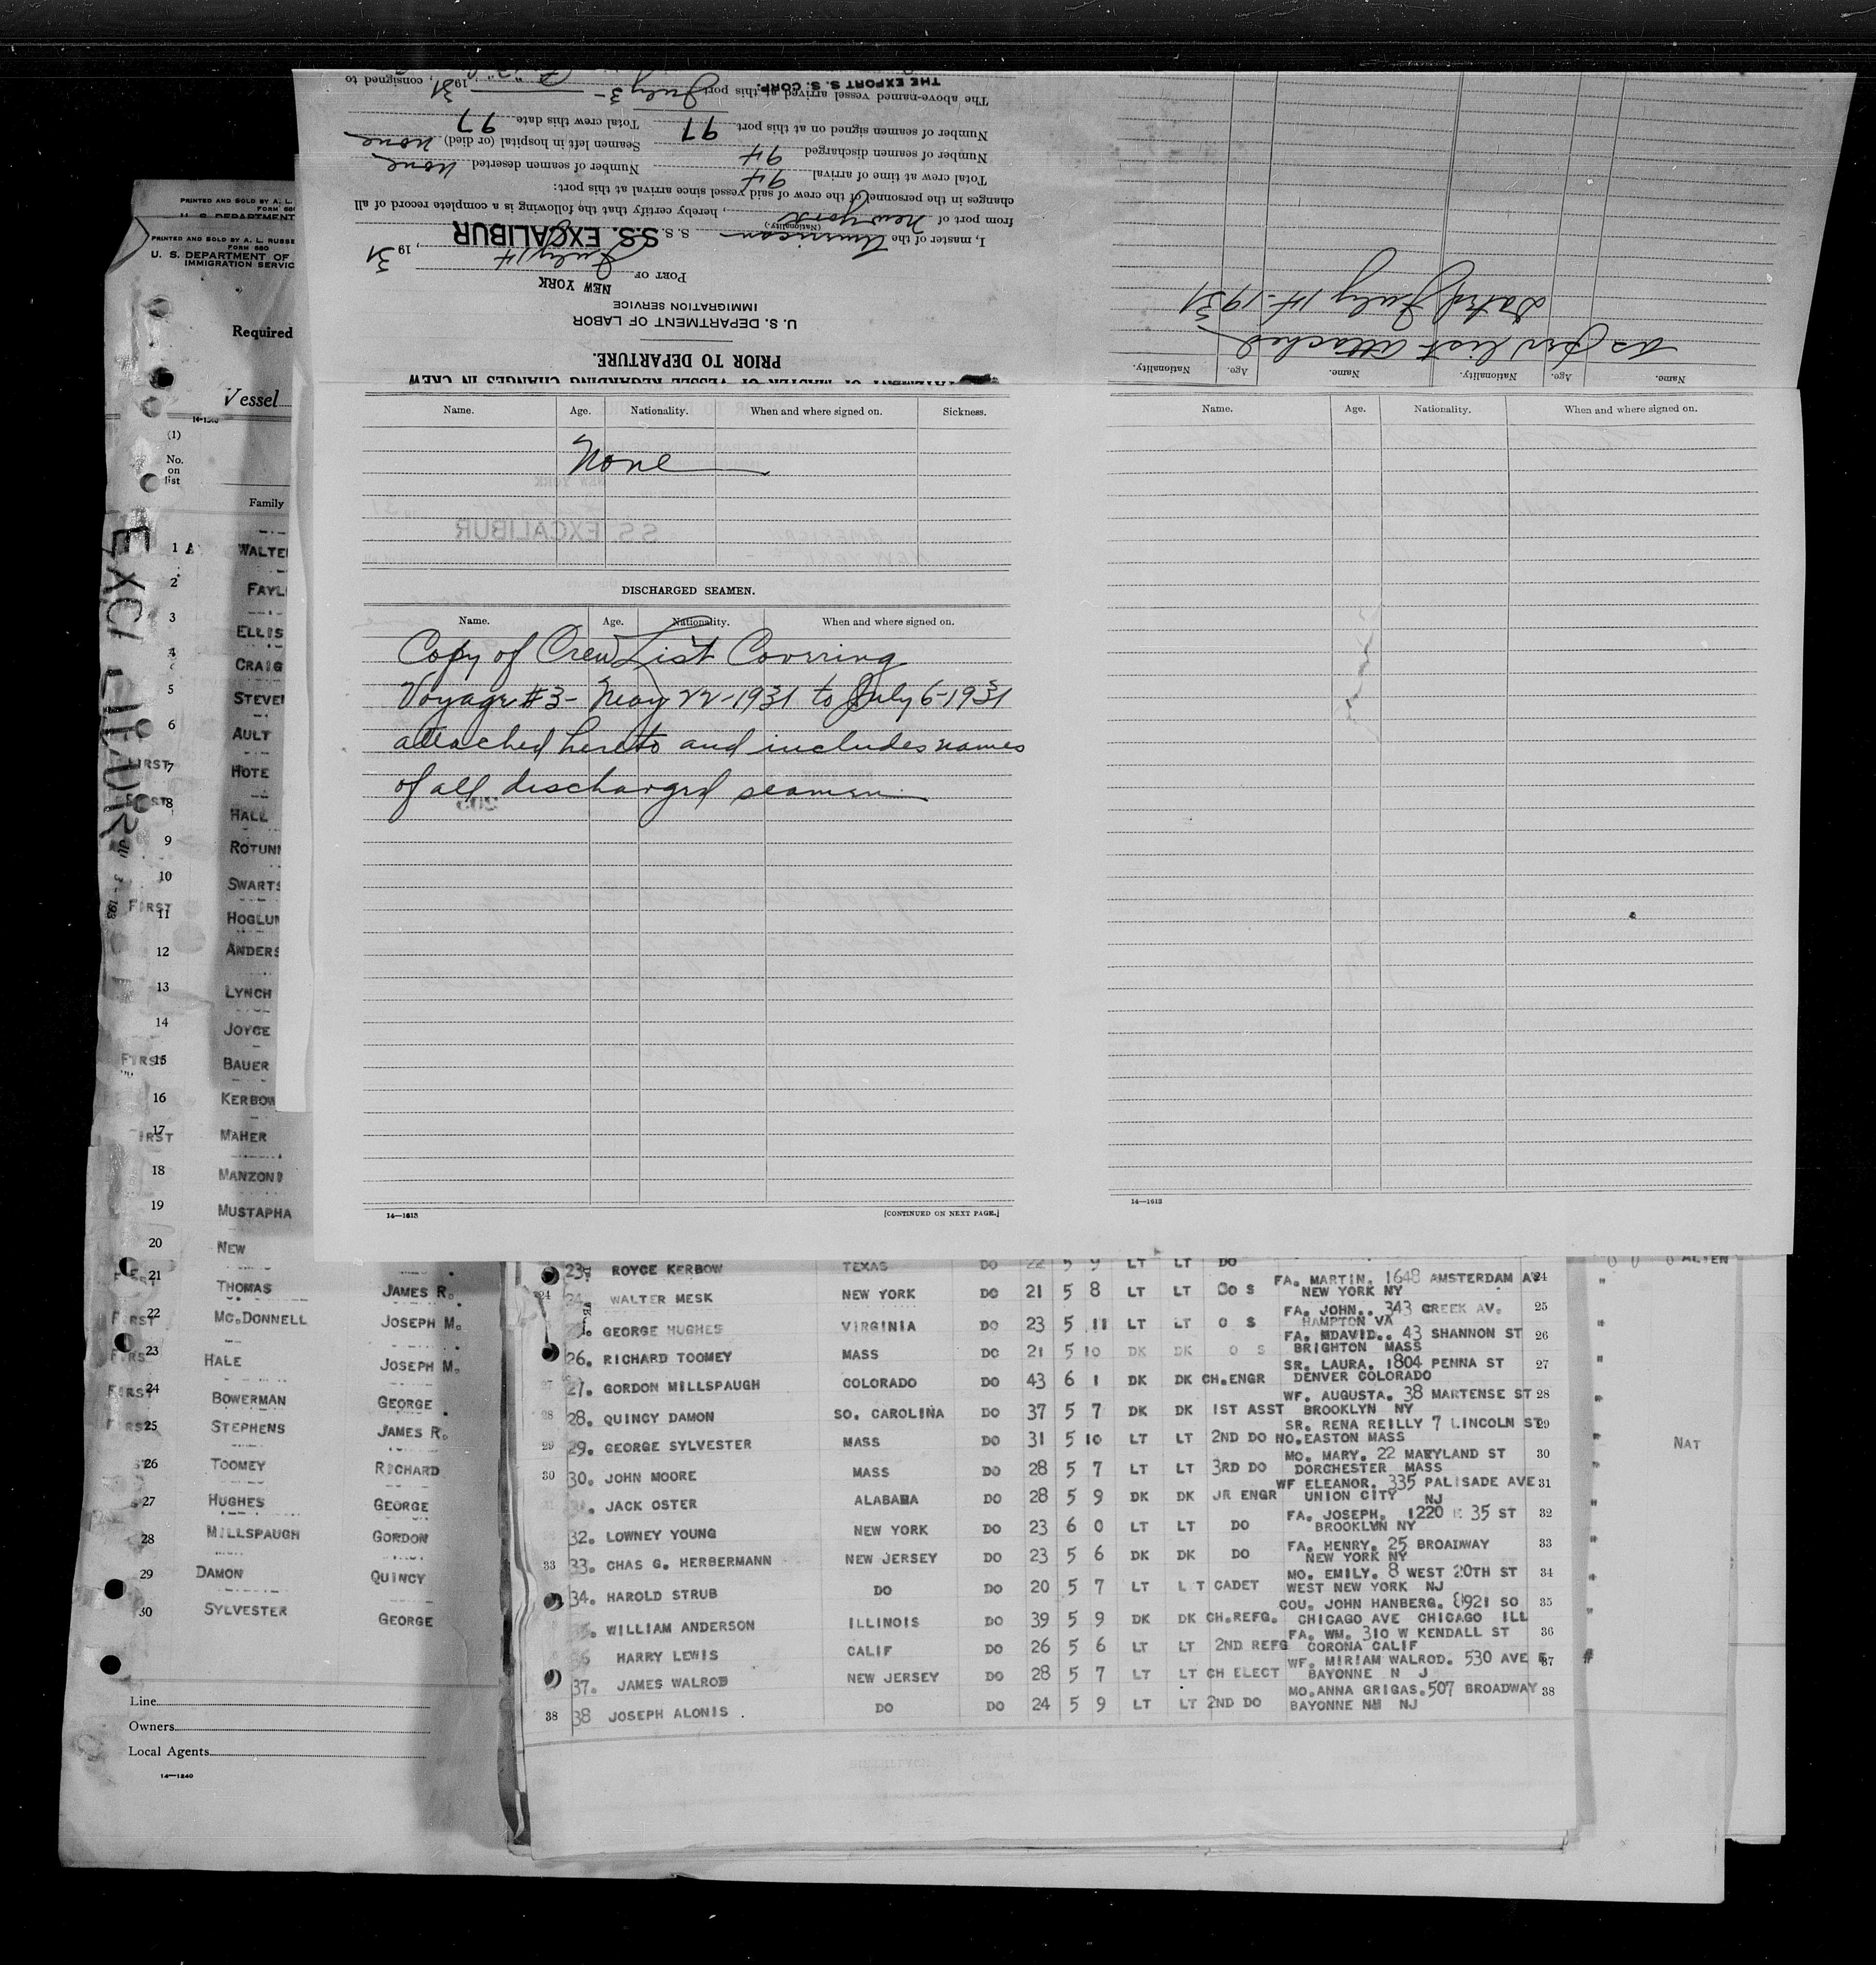 STATEMENT OF MASTER OF VESSEL REGARDING CHANGES IN CREW
PRIOR TO DEPARTURE.
U. S. DEPARTMENT OF LABOR
IMMIGRATION SERVICE
NEW YORK
PORT OF July 14, 1931
I, master of the American S. S. S.S. EXCALIBUR
(Nationality.)
from port of New York, hereby certify that the following is a complete record of all
changes in the personnel of the crew of said vessel since arrival at this port:
Total crew at time of arrival 94 Number of seamen deserted None
Number of seamen discharged 94 Seamen left in hospital (or died) None
Number of seamen signed on at this port 97 Total crew this date 97
The above-named vessel arrived at this port July 3- 1931, consigned to
THE EXPORT S. S. CORP.
Name. Age. Nationality. Name. Age. Nationality.
As per list attached
Dated July 14-1931
Name. Age. Nationality. When and where signed on. Sickness.
None
DISCHARGED SEAMEN.
Name. Age. Nationality. When and where signed on.
Copy of Crew List Covering
Voyage #3- May 22-1931 to July 6-1931
attached hereto and includes names
of all discharged seamen
14—1613 [CONTINUED ON NEXT PAGE.]
Name. Age. Nationality. When and where signed on.
14—1613
PRINTED AND SOLD BY A. L.
U. S. DEPARTMENT
PRINTED AND SOLD BY A. L. RUSSE
FORM 680
U. S. DEPARTMENT OF
IMMIGRATION SERVIC
Required
Vessel
(1)
No.
on
list
Family
1 WALTE
2 FAYL
3 ELLIS
4 CRAIG
5 STEVE
6 AULT
FIRST 7 HOTE
8 HALL
9 ROTUN
10 SWARTS
FIRST 11 HOGLUN
12 ANDERS
13 LYNCH
14 JOYCE
FIRST 15 BAUER
16 KERBOW
FIRST 17 MAHER
18 MANZONI
19 MUSTAPHA
20 NEW
21 THOMAS JAMES R.
FIRST 22 MC.DONNELL JOSEPH M.
FIRST 23 HALE JOSEPH M.
FIRST 24 BOWERMAN GEORGE
FIRST 25 STEPHENS JAMES R.
26 TOOMEY RICHARD
27 HUGHES GEORGE
28 MILLSPAUGH GORDON
29 DAMON QUINCY
30 SYLVESTER GEORGE
Line
Owners
Local Agents
14—1240
23. ROYCE KERBOW TEXAS DO 22 5 9 LT LT DO ALIEN
FA. MARTIN. 1648 AMSTERDAM AV 24
24. WALTER MESK NEW YORK DO 21 5 8 LT LT DO S NEW YORK NY
FA. JOHN.. 343 CREEK AV. 25
GEORGE HUGHES VIRGINIA DO 23 5 11 LT LT O S HAMPTON VA
FA. MDAVID.. 43 SHANNON ST 26
26. RICHARD TOOMEY MASS DO 21 5 10 DK DK O S BRIGHTON MASS
SR. LAURA. 1804 PENNA ST 27
27. GORDON MILLSPAUGH COLORADO DO 43 6 1 DK DK CH.ENGR DENVER COLORADO
WF. AUGUSTA. 38 MARTENSE ST 28
28 28. QUINCY DAMON SO. CAROLINA DO 37 5 7 DK DK 1ST ASST BROOKLYN NY
SR. RENA REILLY 7 LINCOLN ST 29
29 29. GEORGE SYLVESTER MASS DO 31 5 10 LT LT 2ND DO NO.EASTON MASS NAT
MO. MARY. 22 MARYLAND ST 30
30 30. JOHN MOORE MASS DO 28 5 7 LT LT 3RD DO DORCHESTER MASS
WF ELEANOR. 335 PALISADE AVE 31
JACK OSTER ALABAMA DO 28 5 9 DK DK JR ENGR UNION CITY NJ
FA. JOSEPH. 1220 E 35 ST 32
32. LOWNEY YOUNG NEW YORK DO 23 6 0 LT LT DO BROOKLYN NY
FA. HENRY. 25 BROADWAY 33
33 33. CHAS G. HERBERMANN NEW JERSEY DO 23 5 6 DK DK DO NEW YORK NY
MO. EMILY. 8 WEST 20TH ST 34
34. HAROLD STRUB DO DO 20 5 7 LT LT CADET WEST NEW YORK NJ
COU. JOHN HANBERG. 8921 SO 35
WILLIAM ANDERSON ILLINOIS DO 39 5 9 DK DK CH.REFG. CHICAGO AVE CHICAGO ILL
FA. WM. 310 W KENDALL ST 36
HARRY LEWIS CALIF DO 26 5 6 LT LT 2ND REFG CORONA CALIF
WF. MIRIAM WALROD. 530 AVE E 37
37. JAMES WALROD NEW JERSEY DO 28 5 7 LT LT CH ELECT BAYONNE N J
MO.ANNA GRIGAS.507 BROADWAY 38
38 38 JOSEPH ALONIS DO DO 24 5 9 LT LT 2ND DO BAYONNE NJ